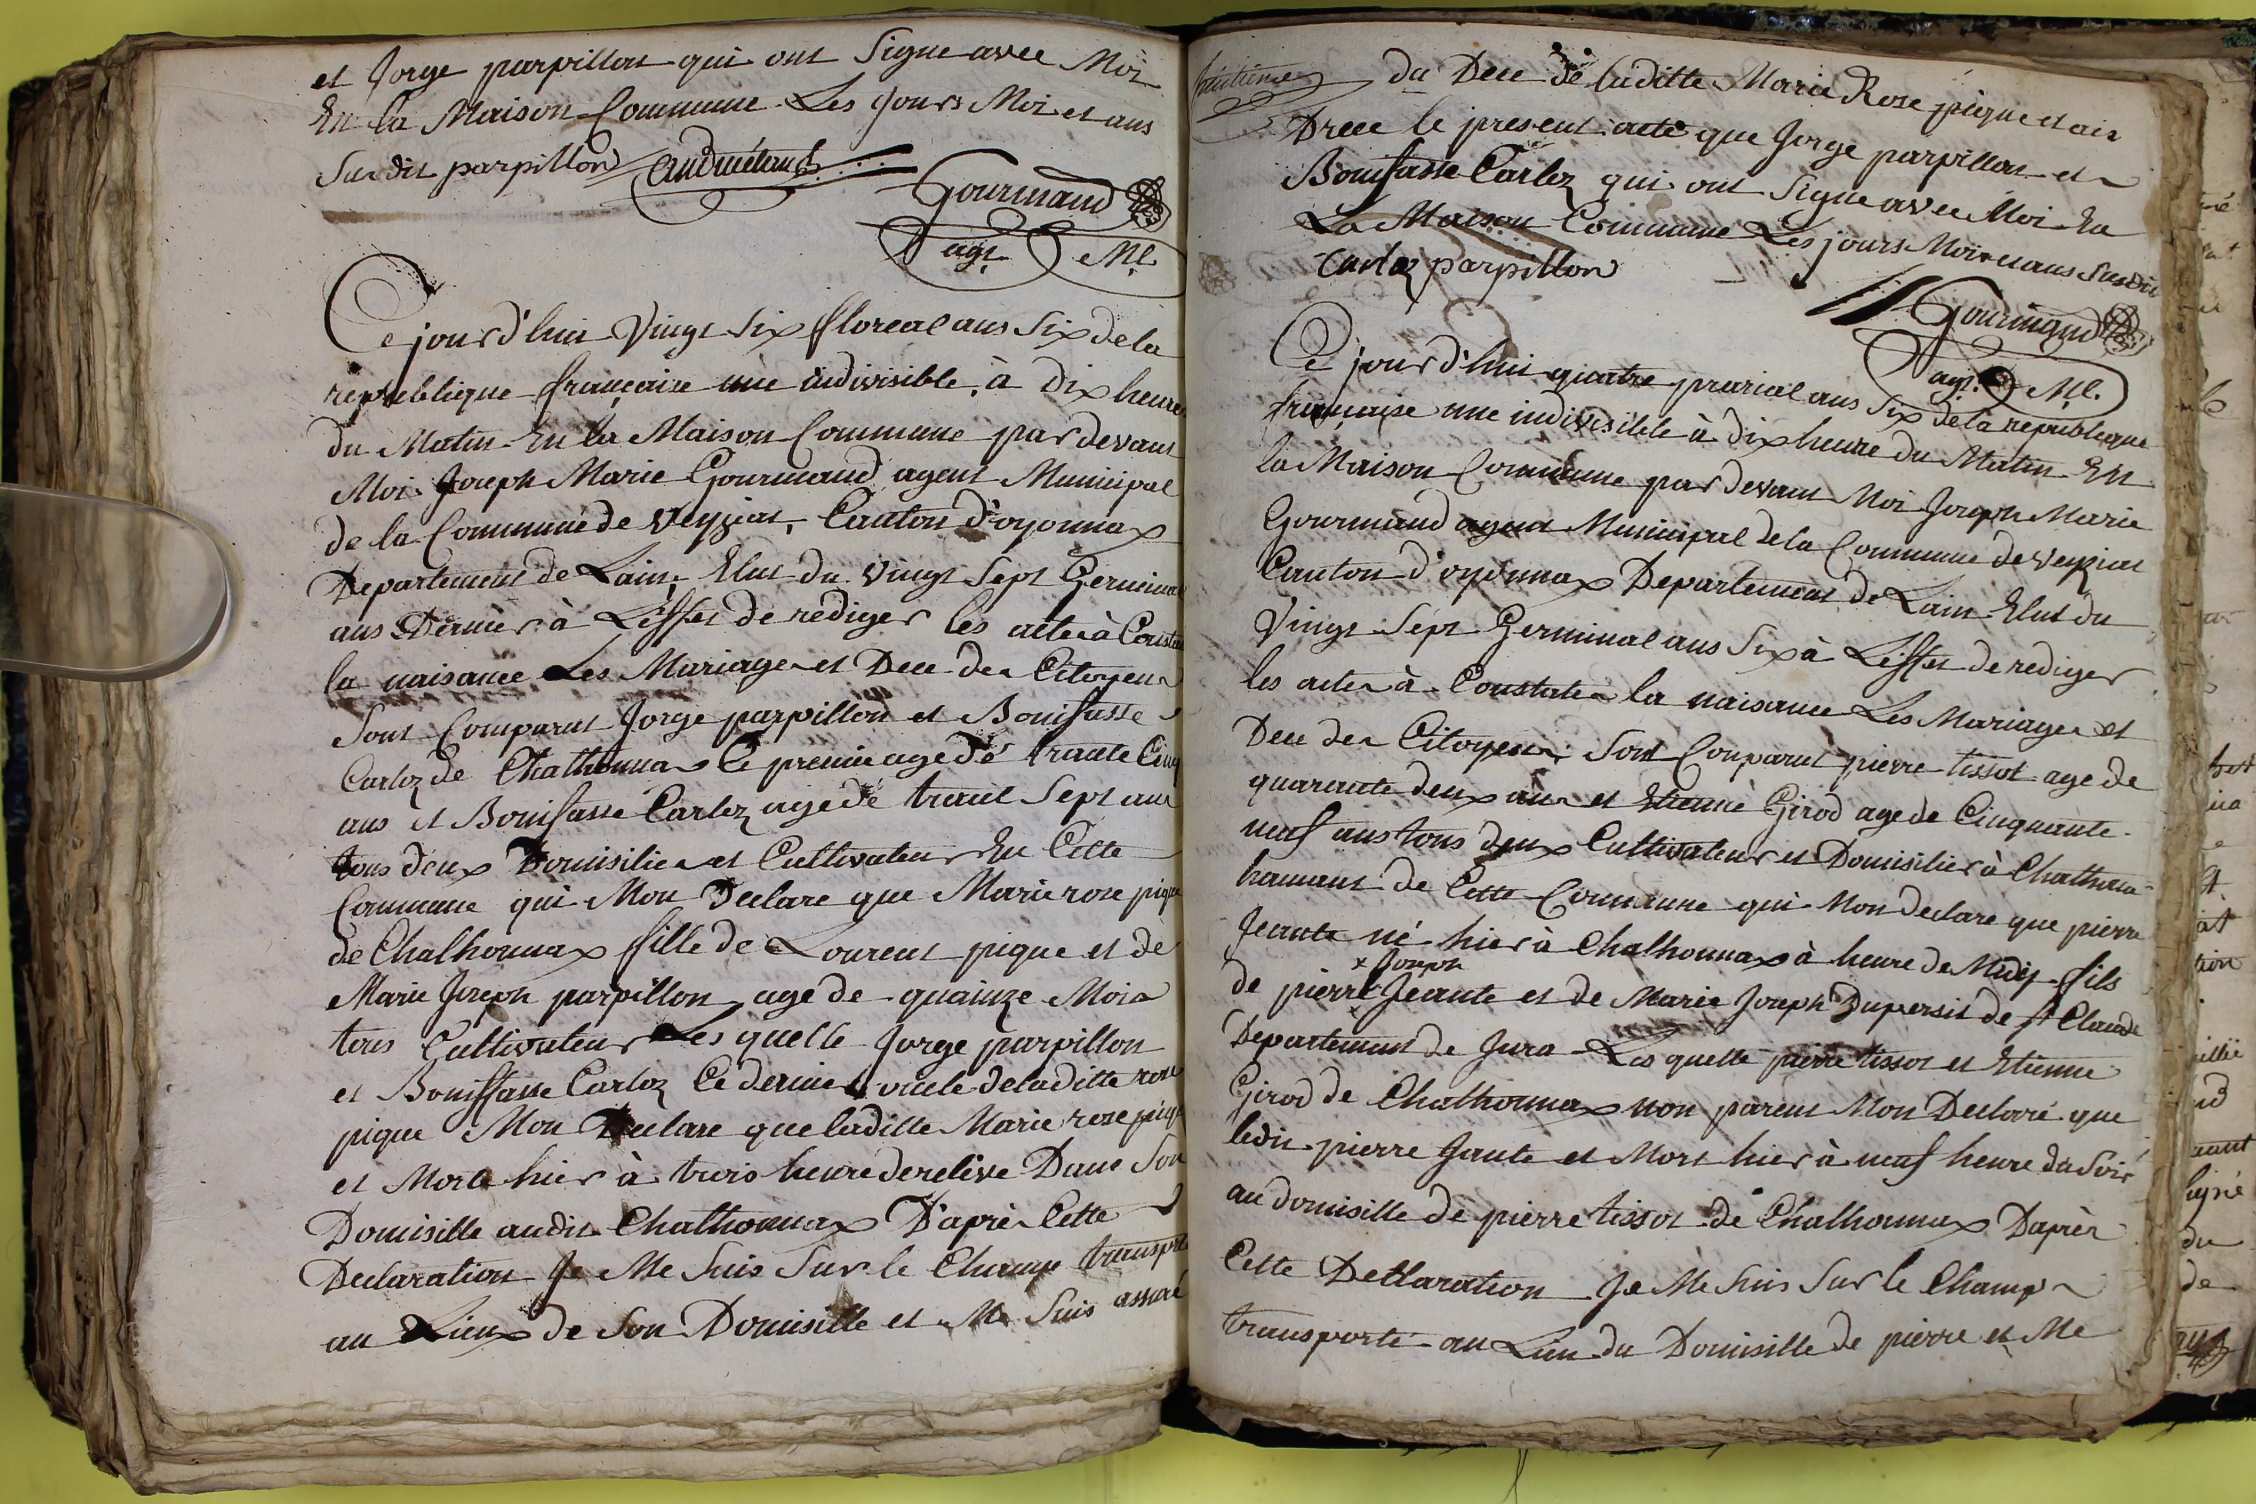 et Jorge parpillon qui ont Signe avec Moi
En la Maison Commune Les Jours Moi et ans
Sus dit parpillon
Gourmand
agt. Ml.
Ce jour d'hui Vingt Six floreal ans Six de la
republique française une indivisible, à Dix heure
du Matin En la Maison Commune par devant
Moi Joseph Marie Gourmand agent Municipal
de la Commune de Veyziat, Canton D'oyonnax
Departement de Lain, Elut du Vingt Sept Germinal
ans Dernier à Leffet de rediger les acte à Consta
la naisance Les Mariage et Dece des Citoyens
Sont Comparut Jorge parpillon et Bonifasse
Carloz de Chathonnax Le premie age de trante Cinq
ans et Bonifasse Carloz age de trant Sept ans
tous deux Domisilies et Cultivateur En Cette
Commune qui Mon Declare que Marie rose pique
de Chalhonnax fille de Lourent pique et de
Marie Joseph parpillon age de quainze Mois
tous Cultivateur Les quelle Jorge parpillon
et Bonifasse Carloz Ce dernier oncle de laditte rose
pique Mon Declare que laditte Marie rose pique
et Morte hier à trois heure derelive Dans Son
Domisille audit Chalhonnax D'après Cette
Declaration Je Me Suis Sur le Champ transpté
au Lieux de Son Domisille et Me Suis assuré
du Dece de laditte Marie Rose pique et ais
Drece le present acte que Jorge parpillon et
Bonifasse Carloz qui ont Signe avec Moi En
La Maison Commune Les jours Moi et ans Susdit
Carloz parpillon
Gourmand
agt. Ml.
Ce jour d'hui quatre prarial ans Six de la republique
française une indivisible à dix heure du Matin En
la Maison Commune par devant Moi Joseph Marie
Gourmand agent Municipal de la Commune de Veyziat
Canton d'oyonnax Departement de Lain Elut du
Vingt Sept Germinal ans Six à Leffet de rediger
les acte à Constater la naisance Les Mariage et
Dece des Citoyens Sont Comparut pierre tissot age de
quarante deux ans et Etienne Girod age de Cinquante
neuf ans tous deux Cultivateur et Domisilier à Chathon
hamant de Cette Commune qui Mon declare que pierre
Jeante né hier à Chalhonnax à heure de Midy fils
x Joseph
de pierre x Jeante et de Marie Joseph Dupersit de St Claude
Departement de Jura Les quelle pierre tissot et Etienne
Girod de Chalhonnax non parent Mon Declaré que
ledit pierre Jante et Mort hier à neuf heure du Soir
au domisille de pierre tissot de Chalhonnax Daprès
Cette Declaration Je Me Suis Sur le Champ
transporté au Lieu du Domisille de pierre et Me